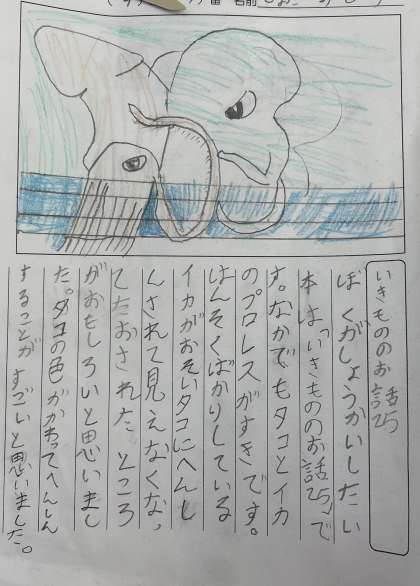 名前
いきもののお話25
ぼくがしょうかいしたい
本は「いきもののお話25」で
す。なかでもタコとイカ
のプロレスがすきです。
はんそくばかりしている
イカがおそいタコにへんし
んされて見えなくなっ
てたおされた。ところ
がおもしろいと思いまし
た。タコの色がかわってへんしん
することがすごいと思いました。